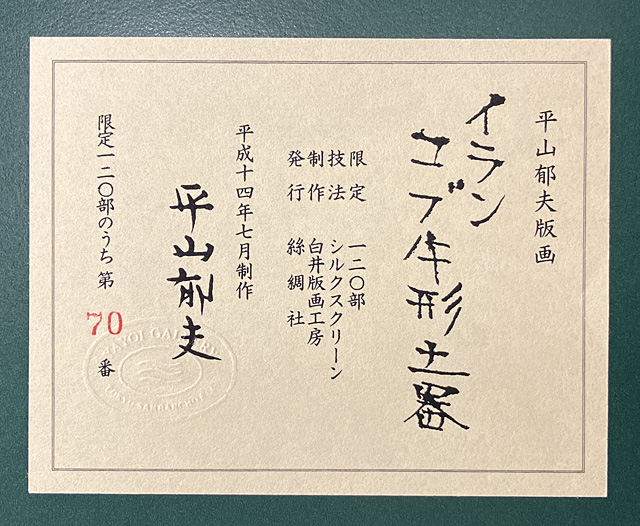 平山郁夫版画
イラン
コブ牛形土器
限定 一二〇部
技法 シルクスクリーン
制作 白井版画工房
発行 絲綢社
平成十四年七月制作
平山郁夫
限定一二〇部のうち 第 70 番